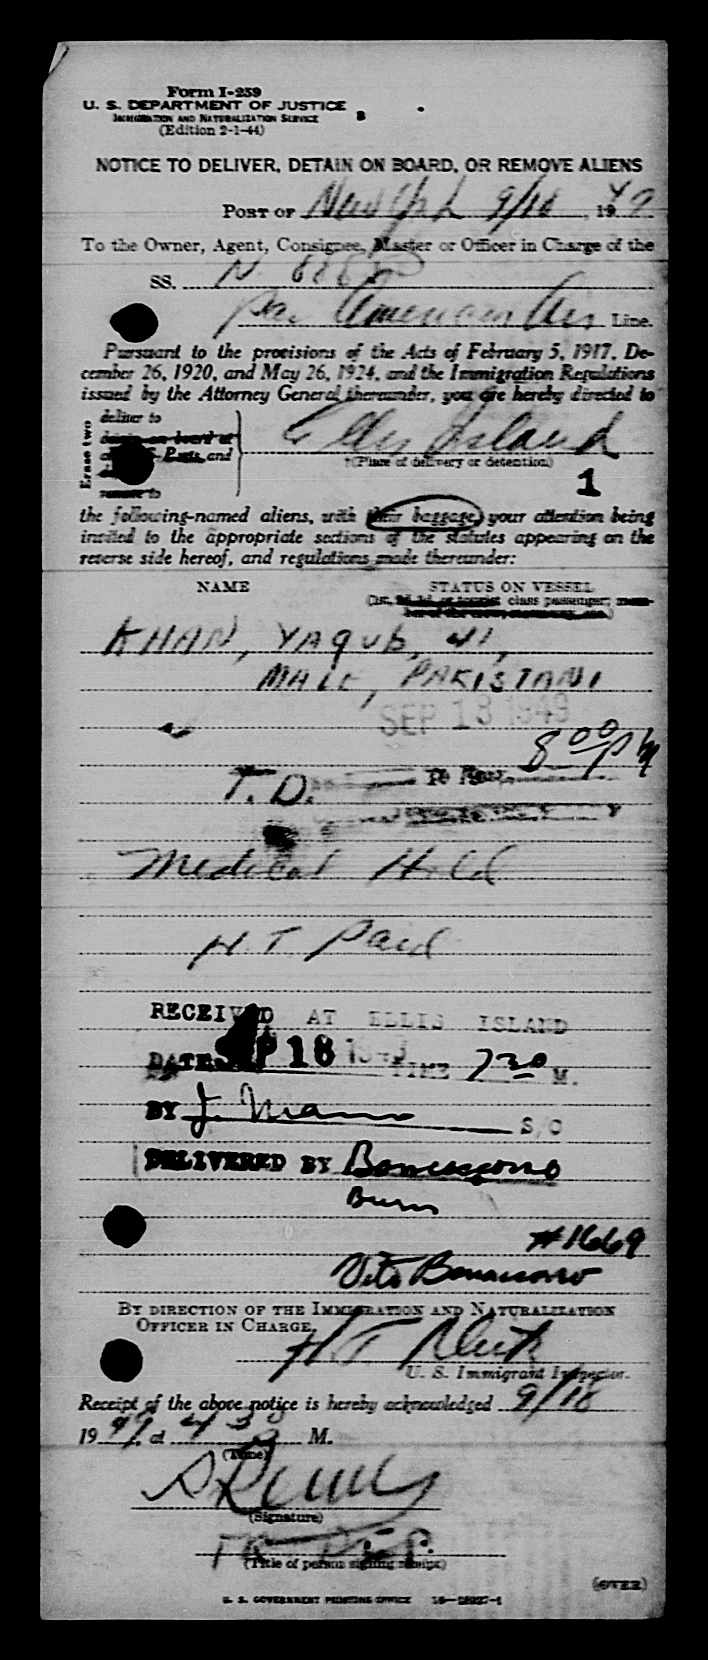 Form I-259
U. S. DEPARTMENT OF JUSTICE
IMMIGRATION AND NATURALIZATION SERVICE
(Edition 2-1-44)
8
NOTICE TO DELIVER, DETAIN ON BOARD, OR REMOVE ALIENS
PORT OF New York 9/18, 1949
To the Owner, Agent, Consignee, Master or Officer in Charge of the
SS. N
Pan American Air Line.
Pursuant to the provisions of the Acts of February 5, 1917, De-
cember 26, 1920, and May 26, 1924, and the Immigration Regulations
issued by the Attorney General thereunder, you are hereby directed to
Erase two
deliver to
detain on board at
and
remove to
Ellis Island
†(Place of delivery or detention)
1
the following-named aliens, with their baggage, your attention being
invited to the appropriate sections of the statutes appearing on the
reverse side hereof, and regulations made thereunder:
NAME
STATUS ON VESSEL
(1st, 2d, 3d, or tourist class passenger; mem-
KHAN, YAQUB, 41,
MALE, PAKISTANI
SEP 18 1949
8 00 PM
T. D.
Medical Hold
HT Paid
RECEIVED AT ELLIS ISLAND
DATE SEP 18 1949 TIME 7 30 M.
BY J. S/O
DELIVERED BY
#1669
Vito
BY DIRECTION OF THE IMMIGRATION AND NATURALIZATION
OFFICER IN CHARGE,
U. S. Immigrant Inspector.
Receipt of the above notice is hereby acknowledged 9/18
1949, at 4 M.
(Time)
(Signature)
(Title of person signing receipt)
(OVER)
U. S. GOVERNMENT PRINTING OFFICE